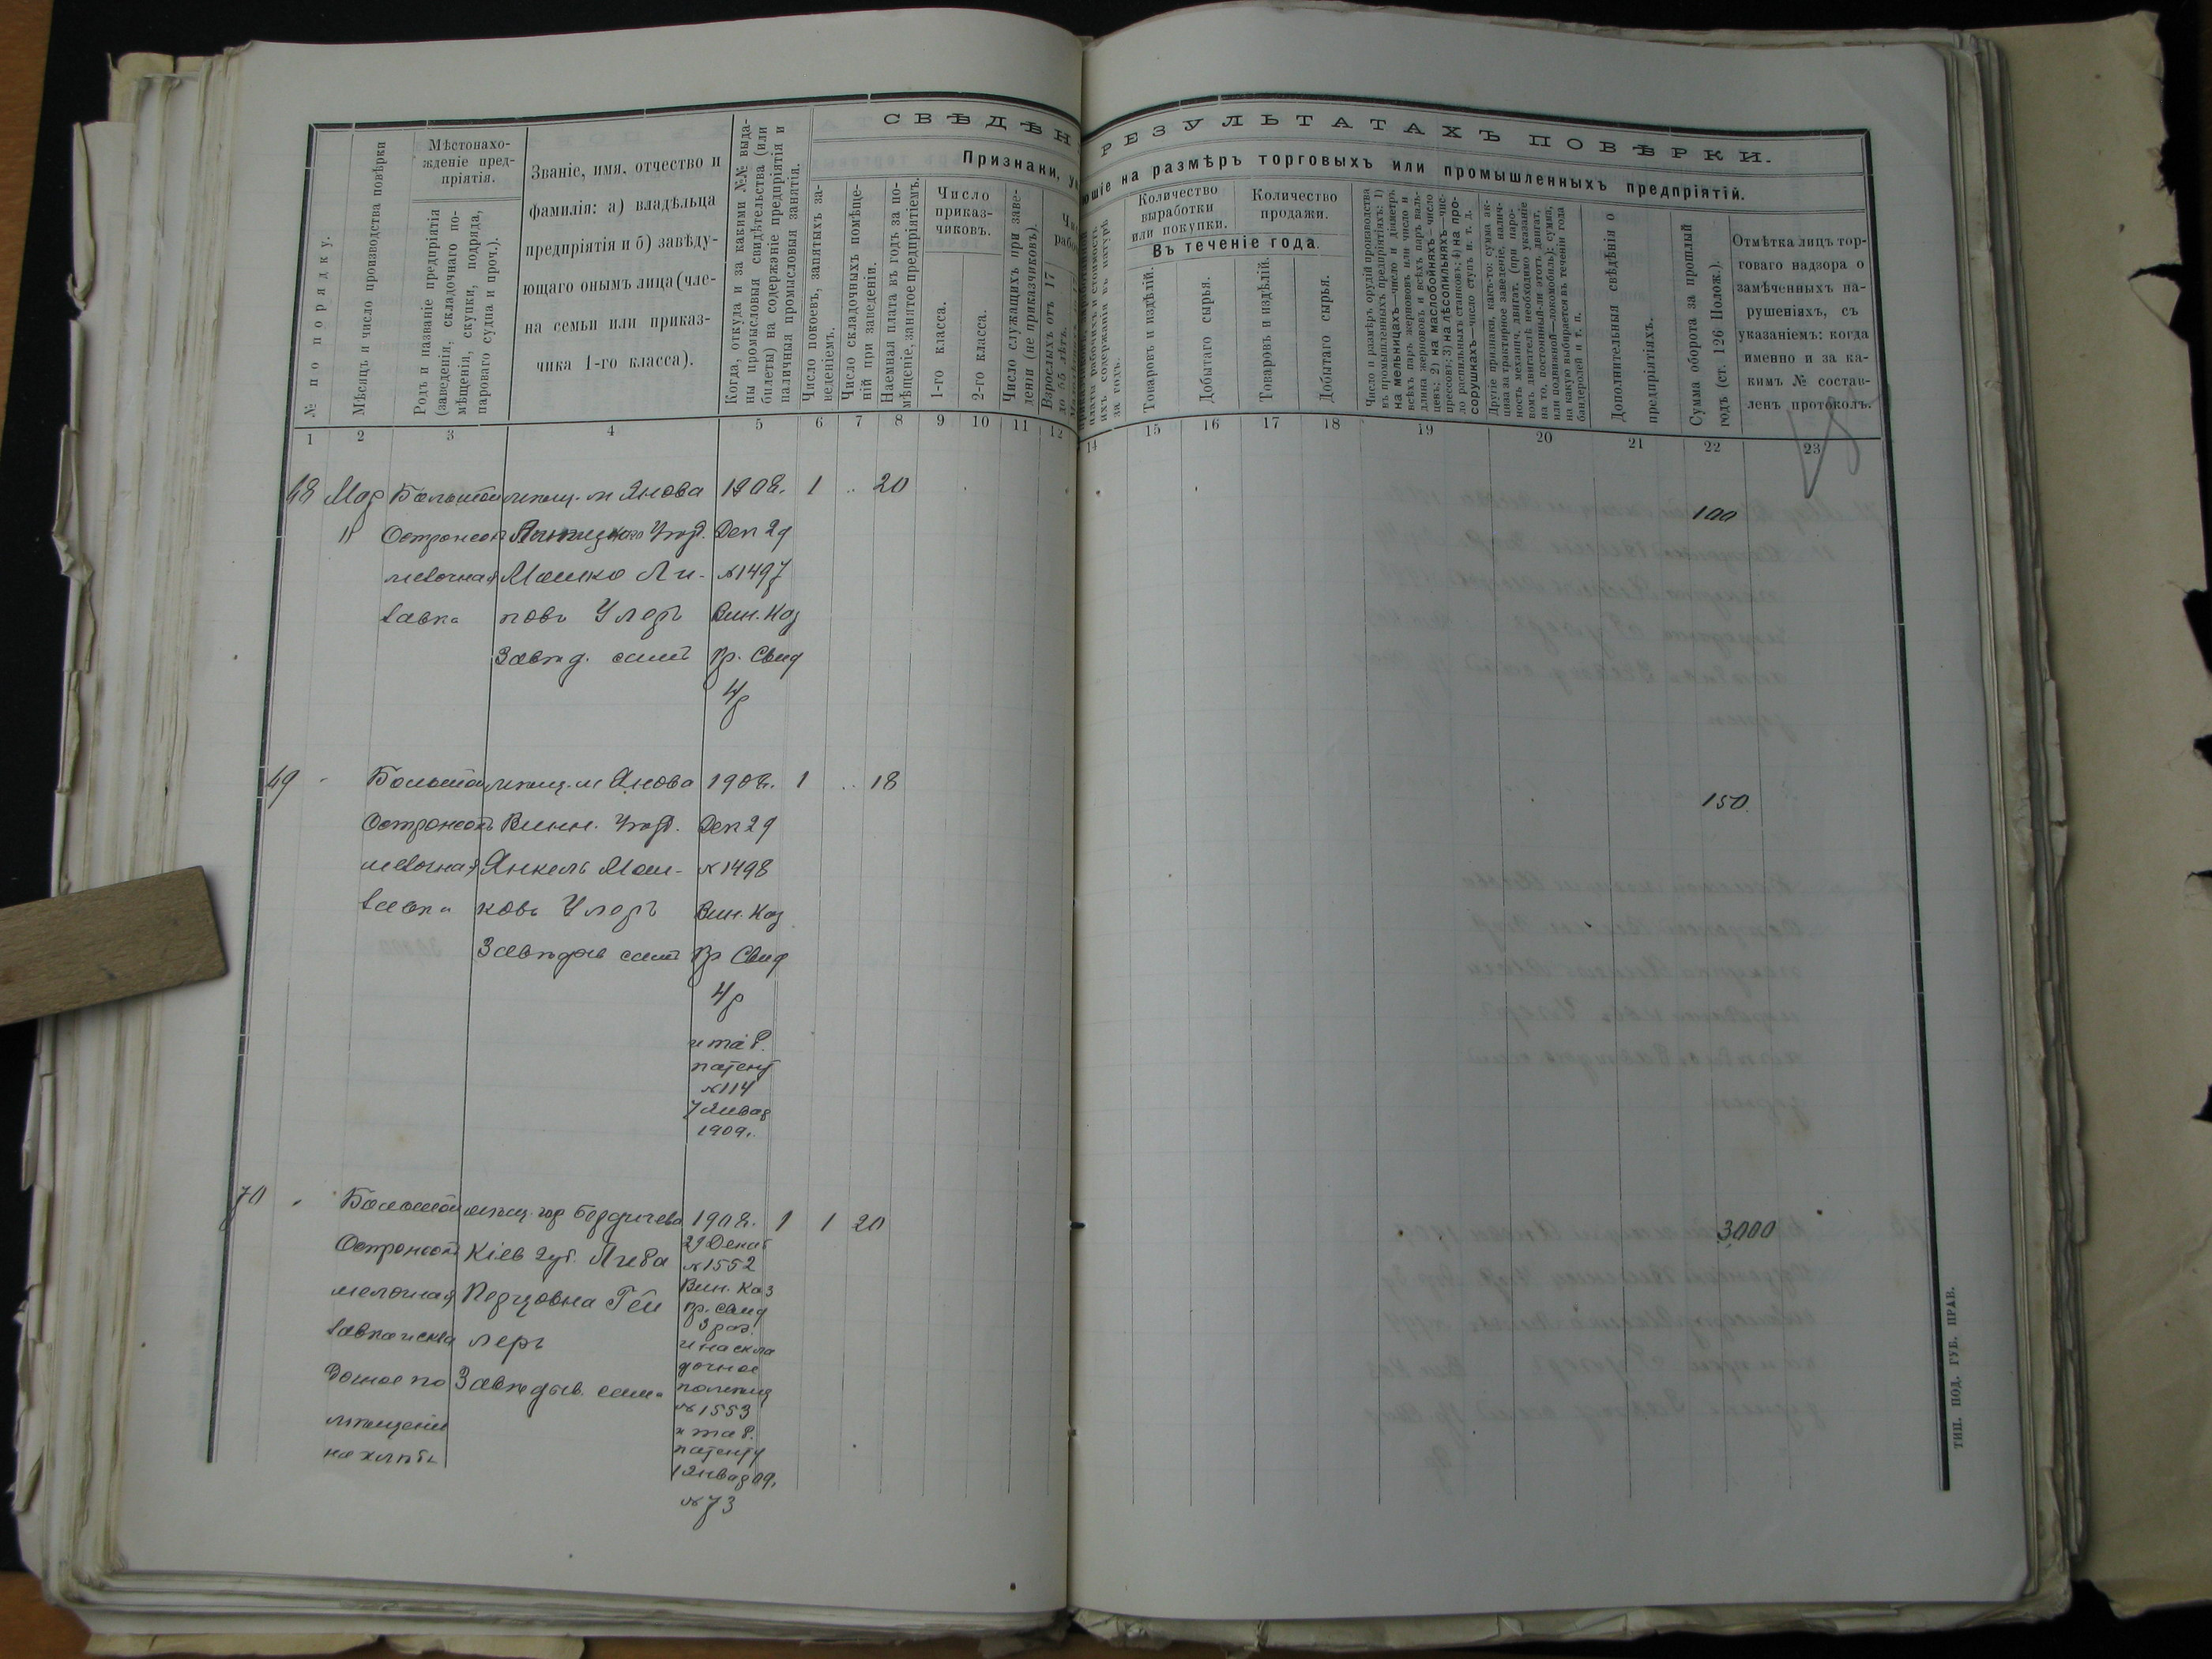 СВѢДѢН
РЕЗУЛЬТАТАХЪ ПОВѢРКИ.
Признаки, ук
ющіе на размѣръ торговыхъ или промышленныхъ предпріятій.
№ по порядку.
Мѣсяцъ и число производства повѣрки
Мѣстонахо-
жденіе пред-
пріятія.
Родъ и названіе предпріятія
(заведенія, складочнаго по-
мѣщенія, скупки, подряда,
пароваго судна и проч.).
Званіе, имя, отчество и
фамилія: а) владѣльца
предпріятія и б) завѣду-
ющаго онымъ лица (чле-
на семьи или приказ-
чика 1-го класса).
Когда, откуда и за какими №№ выда-
ны промысловыя свидѣтельства (или
билеты) на содержаніе предпріятія и
наличныя промысловыя занятія.
Число покоевъ, занятыхъ за-
веденіемъ.
Число складочныхъ помѣще-
ній при заведеніи.
Наемная плата въ годъ за по-
мѣщеніе, занятое предпріятіемъ.
Число
приказ-
чиковъ.
1-го класса.
2-го класса.
Число служащихъ при заве-
деніи (не приказчиковъ).
Взрослыхъ отъ 17
до 55 лѣтъ.
за годъ.
Количество
выработки
или покупки.
Количество
продажи.
Въ теченіе года.
Товаровъ и издѣлій.
Добытаго сырья.
Товаровъ и издѣлій.
Добытаго сырья.
Число и размѣръ орудій производства
въ промышленныхъ предпріятіяхъ: 1)
на мельницахъ—число и діаметръ
всѣхъ паръ жернововъ или число и
длина жернововъ и всѣхъ паръ валь-
цевъ; 2) на маслобойняхъ—число
прессовъ; 3) на лѣсопильняхъ—чис-
ло распильныхъ станковъ; 4) на про-
сорушкахъ—число ступъ и т. д.
Другіе признаки, какъ-то: сумма ак-
циза за трактирное заведеніе, налич-
ность механич. двигат. (при паро-
вомъ двигателѣ необходимо указаніе
на то, постоянный-ли этотъ двигат.
или подвижной—локомобиль); сумма,
на какую выбирается въ теченіи года
бандеролей и т. п.
Дополнительныя свѣдѣнія о
предпріятіяхъ.
Сумма оборота за прошлый
годъ (ст. 126 Полож.).
Отмѣтка лицъ тор-
говаго надзора о
замѣченныхъ на-
рушеніяхъ, съ
указаніемъ: когда
именно и за ка-
кимъ № состав-
ленъ протоколъ.
1 2 3 4 5 6 7 8 9 10 11 12 14 15 16 17 18 19 20 21 22 23
68 Мар Большой мѣщ. м Янова 1908. 1 .. 20 100
11 Острожокъ Угод. Дек 29
мелочная Мошко Ли- №1497
лавка повъ Улеръ Вин. Каз
Завѣд. самъ Пр. Свид
4 р
69 - Большой мѣщ. м Янова 1908г. 1 .. 18 150
Острожокъ Винн. Дек 29
мелочная Янкель Мош- №1498
лавка ковъ Улеръ Вин. Каз
Завѣдыв самъ Пр Свид
4 р
и таб.
патент
№114
7 Январ
1909.
70 - Большой мѣщ. гор Бердичева 1908. 1 1 20 3000
Острожокъ Кіев губ. Либа 29 Декаб
№1552
мелочная Перцовна Гей Вин. Каз
Пр. свид
3 раз.
лавка и скла леръ и на скла
дочное
дочное по Завѣдыв. сама помѣщ
№1553
мѣщеніе и таб.
патенту
на хлѣбъ 1 Января 09.
№73
ТИП. ПОД. ГУБ. ПРАВ.